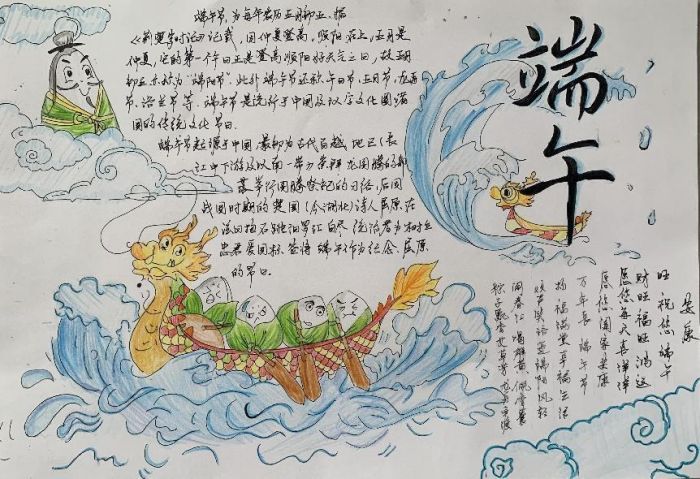 端午
端午节,为每年农历五月初五。据
《荆楚岁时记》记载,因仲夏登高,顺阳在上,五月是
仲夏,它的第一个午日正是登高顺阳好天气之日,故五月
初五亦称为“端阳节”。此外端午节还称午日节、五月节、龙舟
节、浴兰节等。端午节是流行于中国及汉字文化圈诸
国的传统文化节日。
端午节起源于中国,最初为古代百越地区(长
江中下游及以南一带)崇拜龙图腾的部
族举行图腾祭祀的节日,后因
战国时期的楚国(今湖北)诗人屈原在
汨罗江自尽,统治者为树立
忠君爱国标签将端午作为纪念屈原
的节日。
安康
旺祝您端午
财旺福旺鸿运
愿您每天喜洋洋
愿您阖家安康
万年长端午节
福满堂幸福生活
端阳风轻
粽子飘香艾草芳